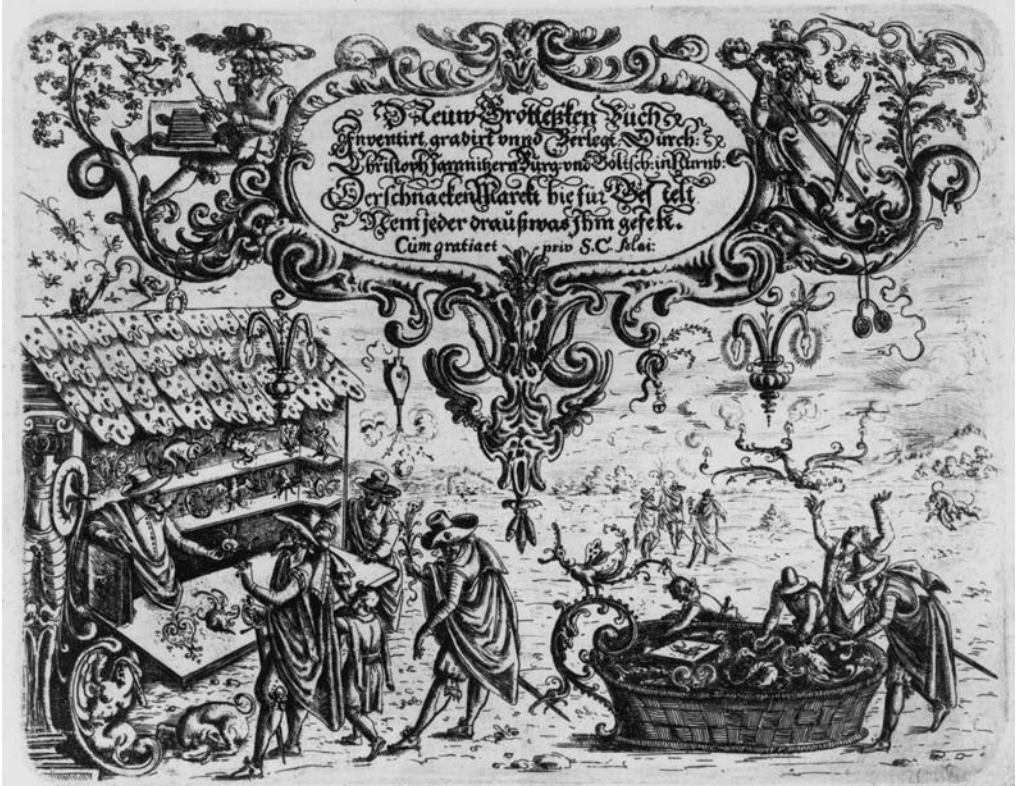 Neuw Grotteßken Buch
Inventirt gradirt vnnd Verlegt Durch:
Christoph Jamnitzern Burg: vnd Goltsch: in Nürnb:
Der schnacken Marckt bie für
Nem jeder drauß was Ihm gefelt.
Cüm gratia et priv S.C.